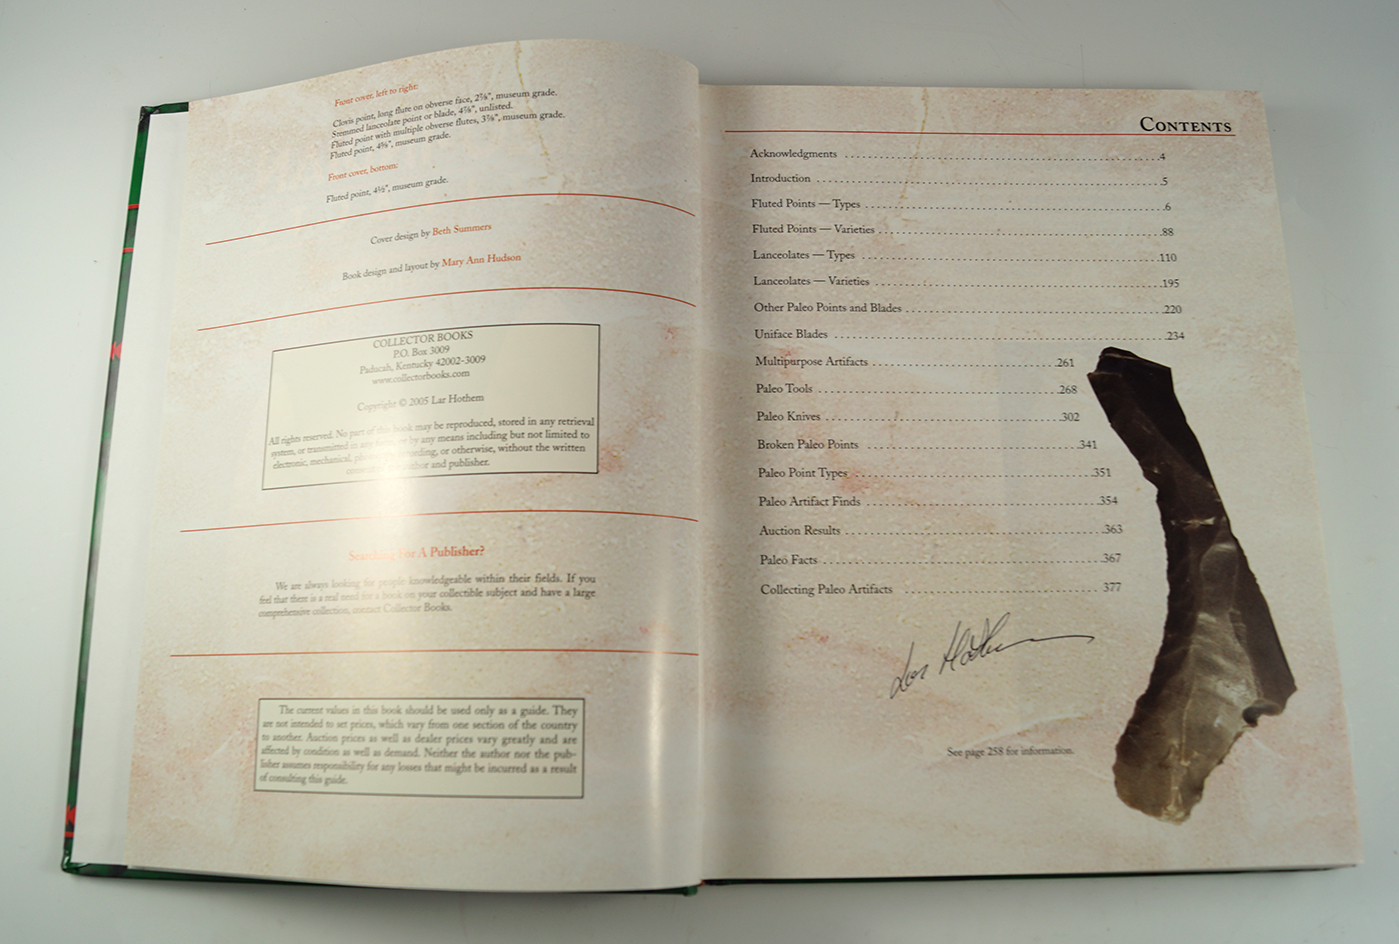 Front cover, left to right:
Clovis point, long flute on obverse face, 2⅞", museum grade.
Stemmed lanceolate point or blade, 4⅞", unlisted.
Fluted point with multiple obverse flutes, 3⅞", museum grade.
Fluted point, 4⅜", museum grade.
Front cover, bottom:
Fluted point, 4½", museum grade.
Cover design by Beth Summers
Book design and layout by Mary Ann Hudson
COLLECTOR BOOKS
P.O. Box 3009
Paducah, Kentucky 42002-3009
www.collectorbooks.com
Copyright © 2005 Lar Hothem
All rights reserved. No part of this book may be reproduced, stored in any retrieval
system, or transmitted in any form, or by any means including but not limited to
electronic, mechanical, recording, or otherwise, without the written
author and publisher.
Searching For A Publisher?
We are always looking for people knowledgeable within their fields. If you
feel that there is a real need for a book on your collectible subject and have a large
comprehensive collection, contact Collector Books.
The current values in this book should be used only as a guide. They
are not intended to set prices, which vary from one section of the country
to another. Auction prices as well as dealer prices vary greatly and are
affected by condition as well as demand. Neither the author nor the pub-
lisher assumes responsibility for any losses that might be incurred as a result
of consulting this guide.
CONTENTS
Acknowledgments ..........4
Introduction ..........5
Fluted Points — Types ..........6
Fluted Points — Varieties ..........88
Lanceolates — Types ..........110
Lanceolates — Varieties ..........195
Other Paleo Points and Blades ..........220
Uniface Blades ..........234
Multipurpose Artifacts ..........261
Paleo Tools ..........268
Paleo Knives ..........302
Broken Paleo Points ..........341
Paleo Point Types ..........351
Paleo Artifact Finds ..........354
Auction Results ..........363
Paleo Facts ..........367
Collecting Paleo Artifacts ..........377
Lar Hothem
See page 258 for information.